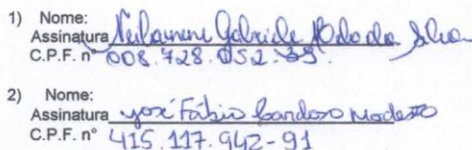 1) Nome:
Assinatura Gabriele da Silva
C.P.F. nº 008.728.052-39.
2) Nome:
Assinatura José Fábio Cardoso Modesto
C.P.F. nº 415.117.942-91